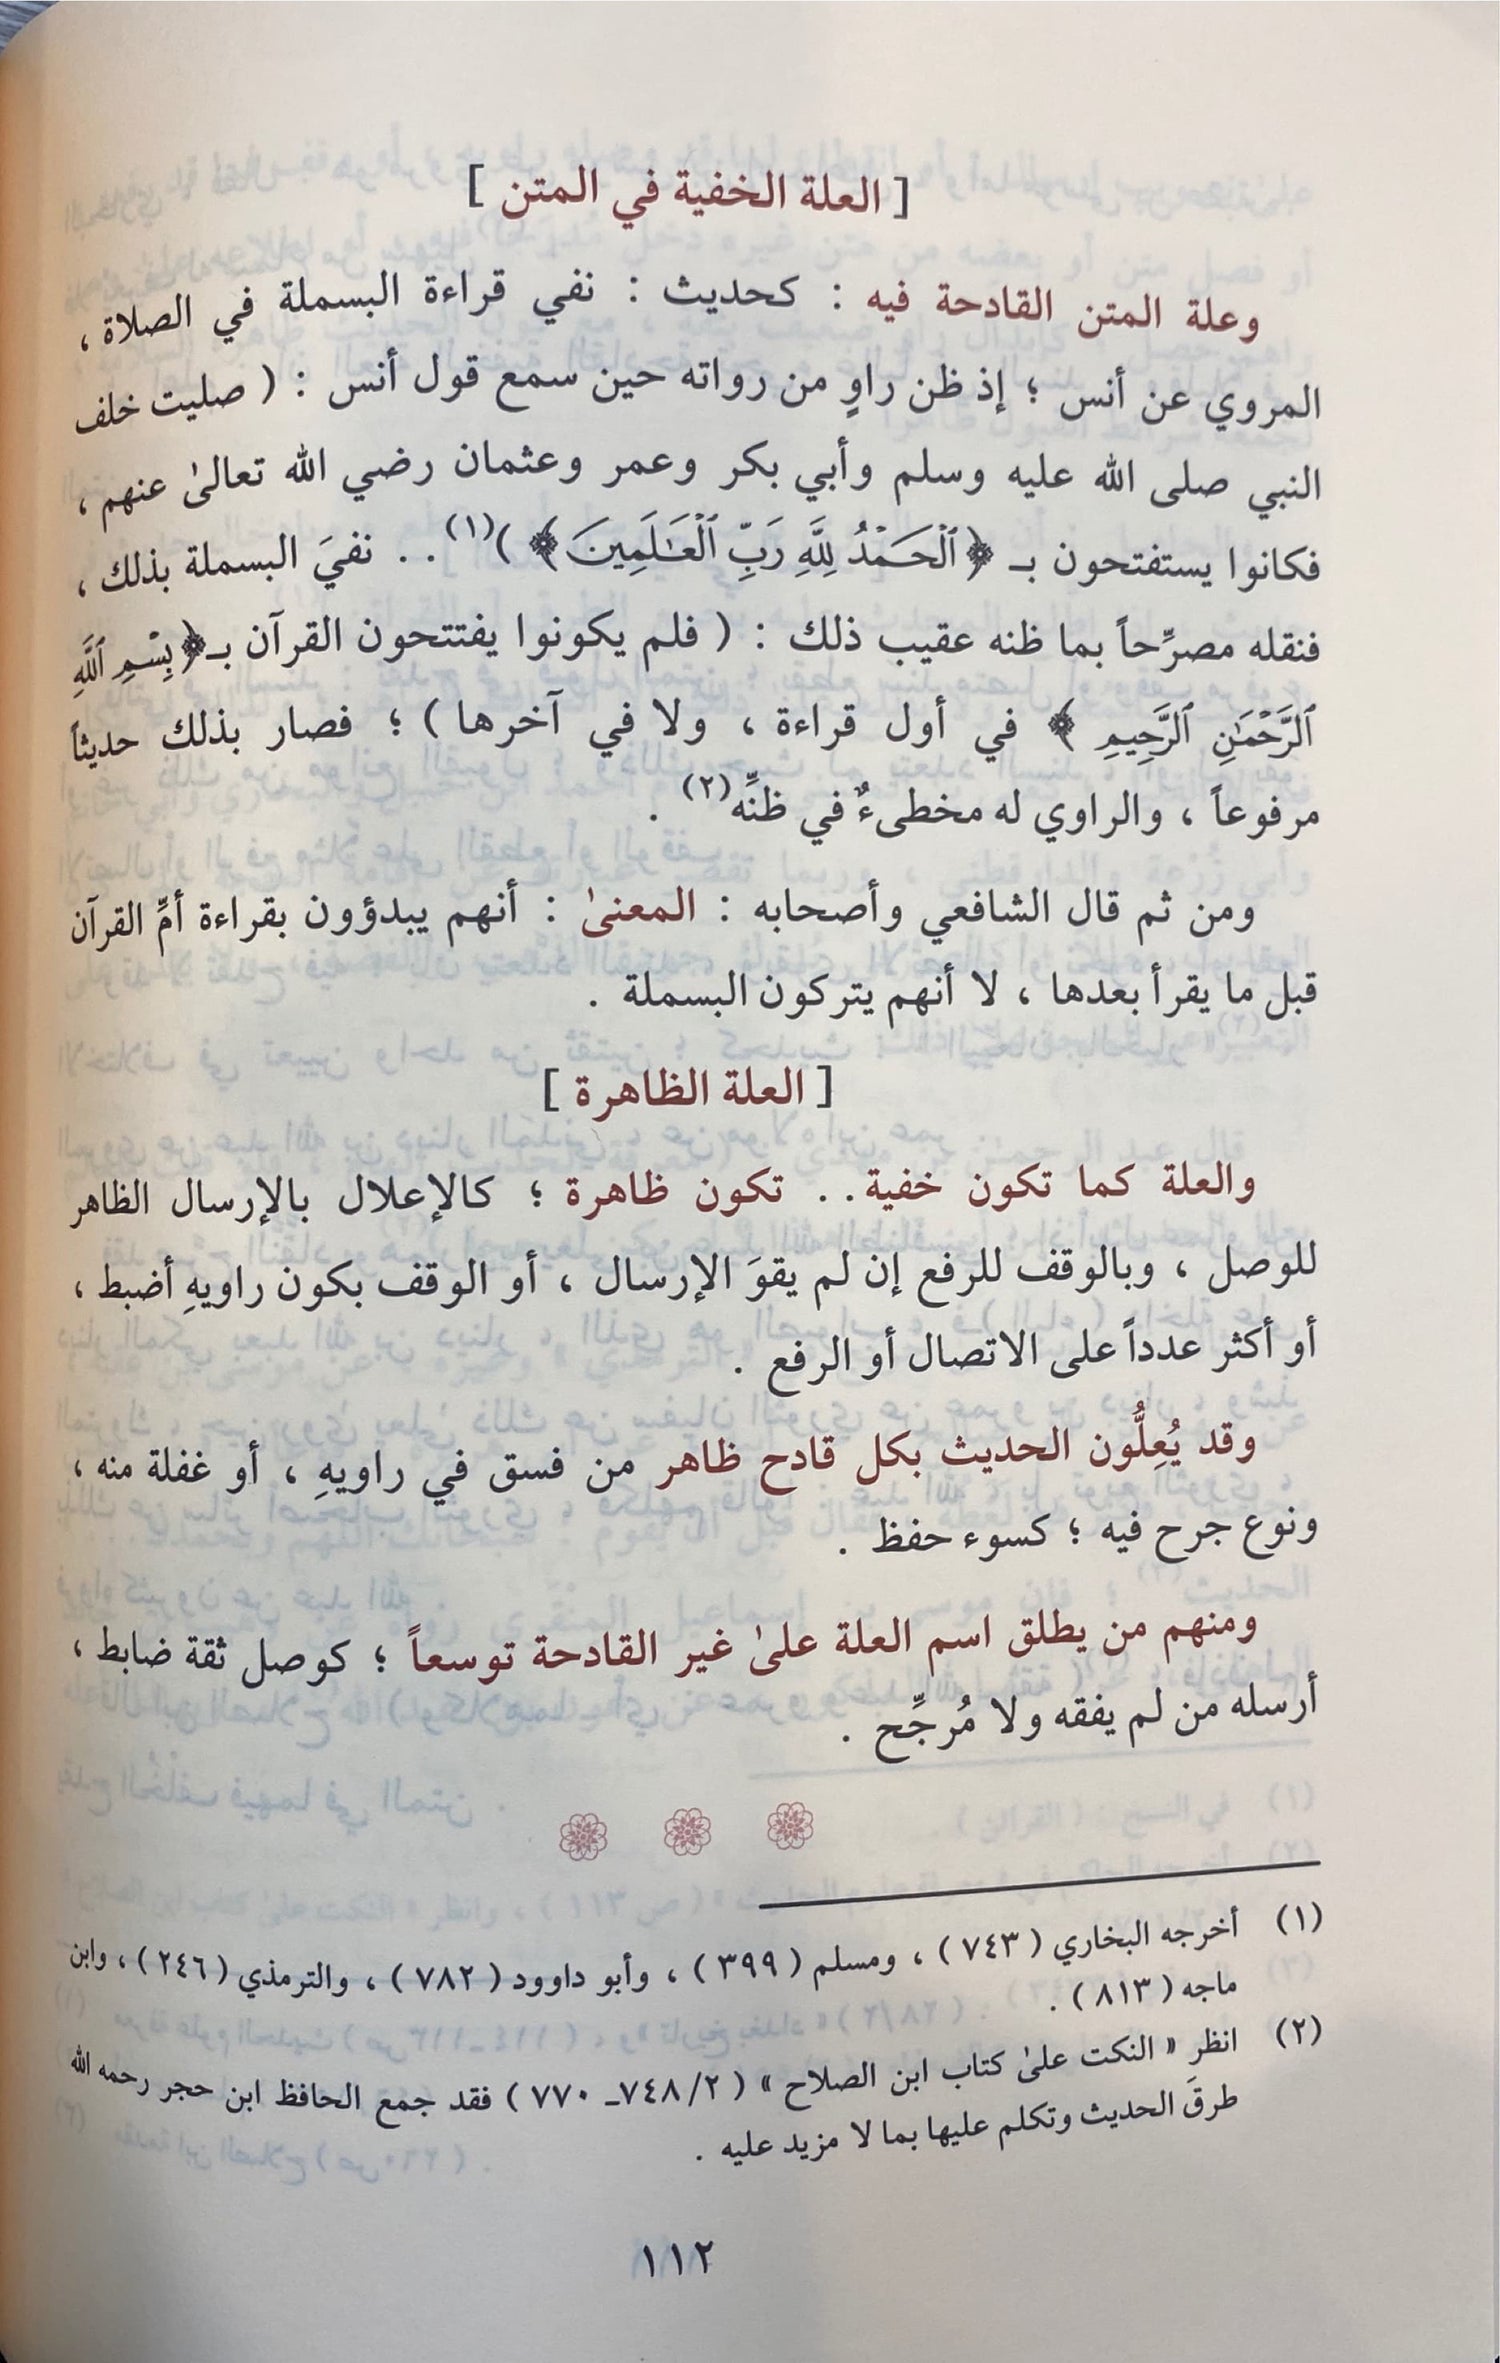 [ العلة الخفية في المتن ]
وعلة المتن القادحة فيه : كحديث : نفي قراءة البسملة في الصلاة ،
المروي عن أنس ؛ إذ ظن راوٍ من رواته حين سمع قول أنس : ( صليت خلف
النبي صلى الله عليه وسلم وأبي بكر وعمر وعثمان رضي الله تعالىٰ عنهم ،
فكانوا يستفتحون بـ ﴿ ٱلْحَمْدُ لِلَّهِ رَبِّ ٱلْعَـٰلَمِينَ ﴾ )(١) . . نفيَ البسملة بذلك ،
فنقله مصرِّحاً بما ظنه عقيب ذلك : ( فلم يكونوا يفتتحون القرآن بـ﴿ بِسْمِ ٱللَّهِ
ٱلرَّحْمَـٰنِ ٱلرَّحِيمِ ﴾ في أول قراءة ، ولا في آخرها ) ؛ فصار بذلك حديثاً
مرفوعاً ، والراوي له مخطىءٌ في ظنِّه(٢) .
ومن ثم قال الشافعي وأصحابه : المعنىٰ : أنهم يبدؤون بقراءة أمِّ القرآن
قبل ما يقرأ بعدها ، لا أنهم يتركون البسملة .
[ العلة الظاهرة ]
والعلة كما تكون خفية . . تكون ظاهرة ؛ كالإعلال بالإرسال الظاهر
للوصل ، وبالوقف للرفع إن لم يقوَ الإرسال ، أو الوقف بكون راويهِ أضبط ،
أو أكثر عدداً على الاتصال أو الرفع .
وقد يُعِلُّون الحديث بكل قادح ظاهر من فسق في راويهِ ، أو غفلة منه ،
ونوع جرح فيه ؛ كسوء حفظ .
ومنهم من يطلق اسم العلة علىٰ غير القادحة توسعاً ؛ كوصل ثقة ضابط ،
أرسله من لم يفقه ولا مُرجِّح .
(١) أخرجه البخاري ( ٧٤٣ ) ، ومسلم ( ٣٩٩ ) ، وأبو داوود ( ٧٨٢ ) ، والترمذي ( ٢٤٦ ) ، وابن
ماجه ( ٨١٣ ) .
(٢) انظر « النكت علىٰ كتاب ابن الصلاح » ( ٢/ ٧٤٨ـ ٧٧٠ ) فقد جمع الحافظ ابن حجر رحمه الله
طرقَ الحديث وتكلم عليها بما لا مزيد عليه .
١١٢